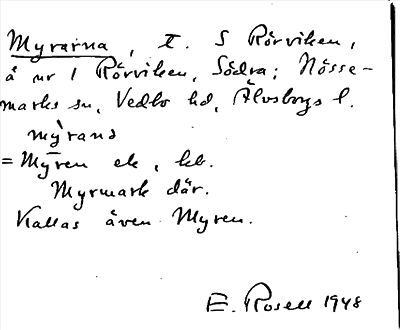 Myrarna, t. S Rörviken,
å nr 1 Rörviken, Södra; Nösse-
marks sn, Vedbo hd, Älvsborgs l.
mỳrans
= Myren ek, kb.
Myrmark där.
Kallas även Myren.
E. Rosell 1948